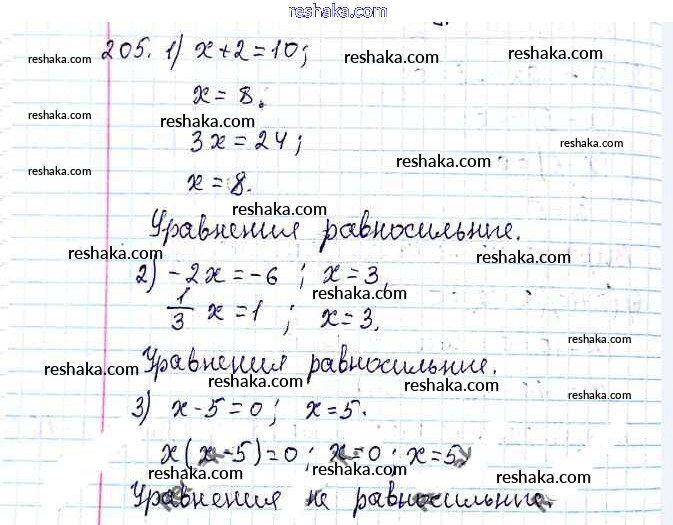 reshaka.com
205. 1) x+2=10; reshaka.com
reshaka.com
x=8. reshaka.com
reshaka.com reshaka.com
3x=24; reshaka.com
reshaka.com x=8.
reshaka.com
Уравнения равносильные.
reshaka.com reshaka.com
2) -2x=-6 ; x=3.
reshaka.com
1/3 x=1 ; x=3.
reshaka.com
Уравнения равносильные.
reshaka.com reshaka.com reshaka.com
3) x-5=0; x=5.
reshaka.com
x(x-5)=0; x=0; x=5.
reshaka.com reshaka.com reshaka.com
Уравнения не равносильные.
reshaka.com